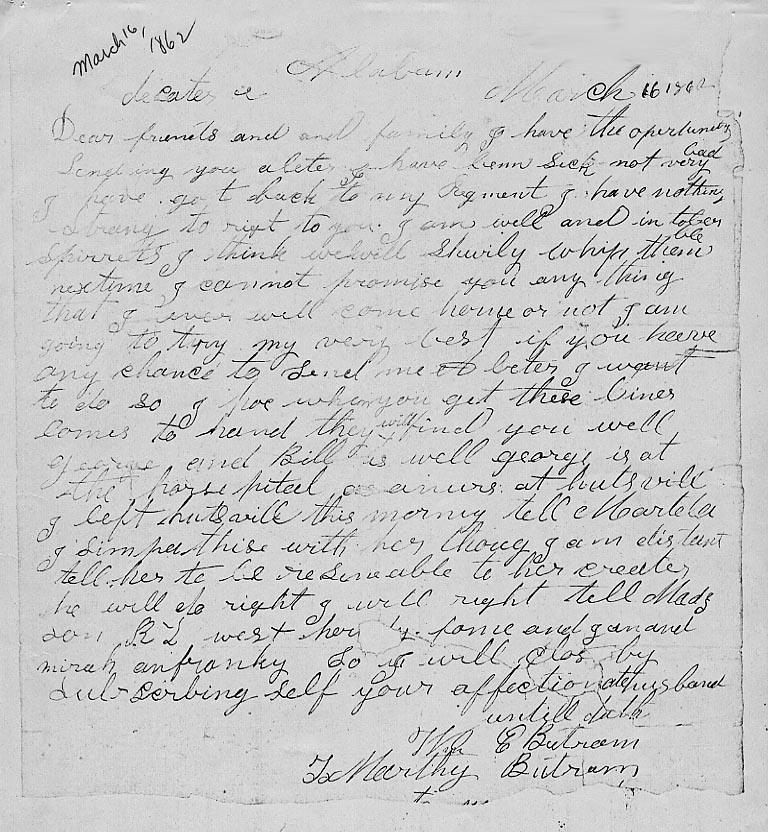 March 16, 1862
Alabam
decater March 16 1862
Dear friends and and family I have the opertunity
Sending you a leter I have benn Sick not very bad
I have got back to my Regment I have nothing
strang to right to you I am well and in toler
spirrets I think we will Shurily whip them
nextime I cannot promise you any thing
that I ever will come home or not I am
going to try my very best if you have
any chance to send me a leter I want
to do so I hoe when you get these lines
comes to hand they will find you well
george and Bill is well george is at
the horse pital as a nurs at hutsvill
I left hutsvill this morning tell Martela
I simpathise with her thoug I am distant
tell her to be resineable to her creater
he will do right I will right tell Mads
son R L west her
mirah an franky So I will clos by
Subscribing self your affectionate husband
untill dath
Wm E Butram
To Marthy Butram